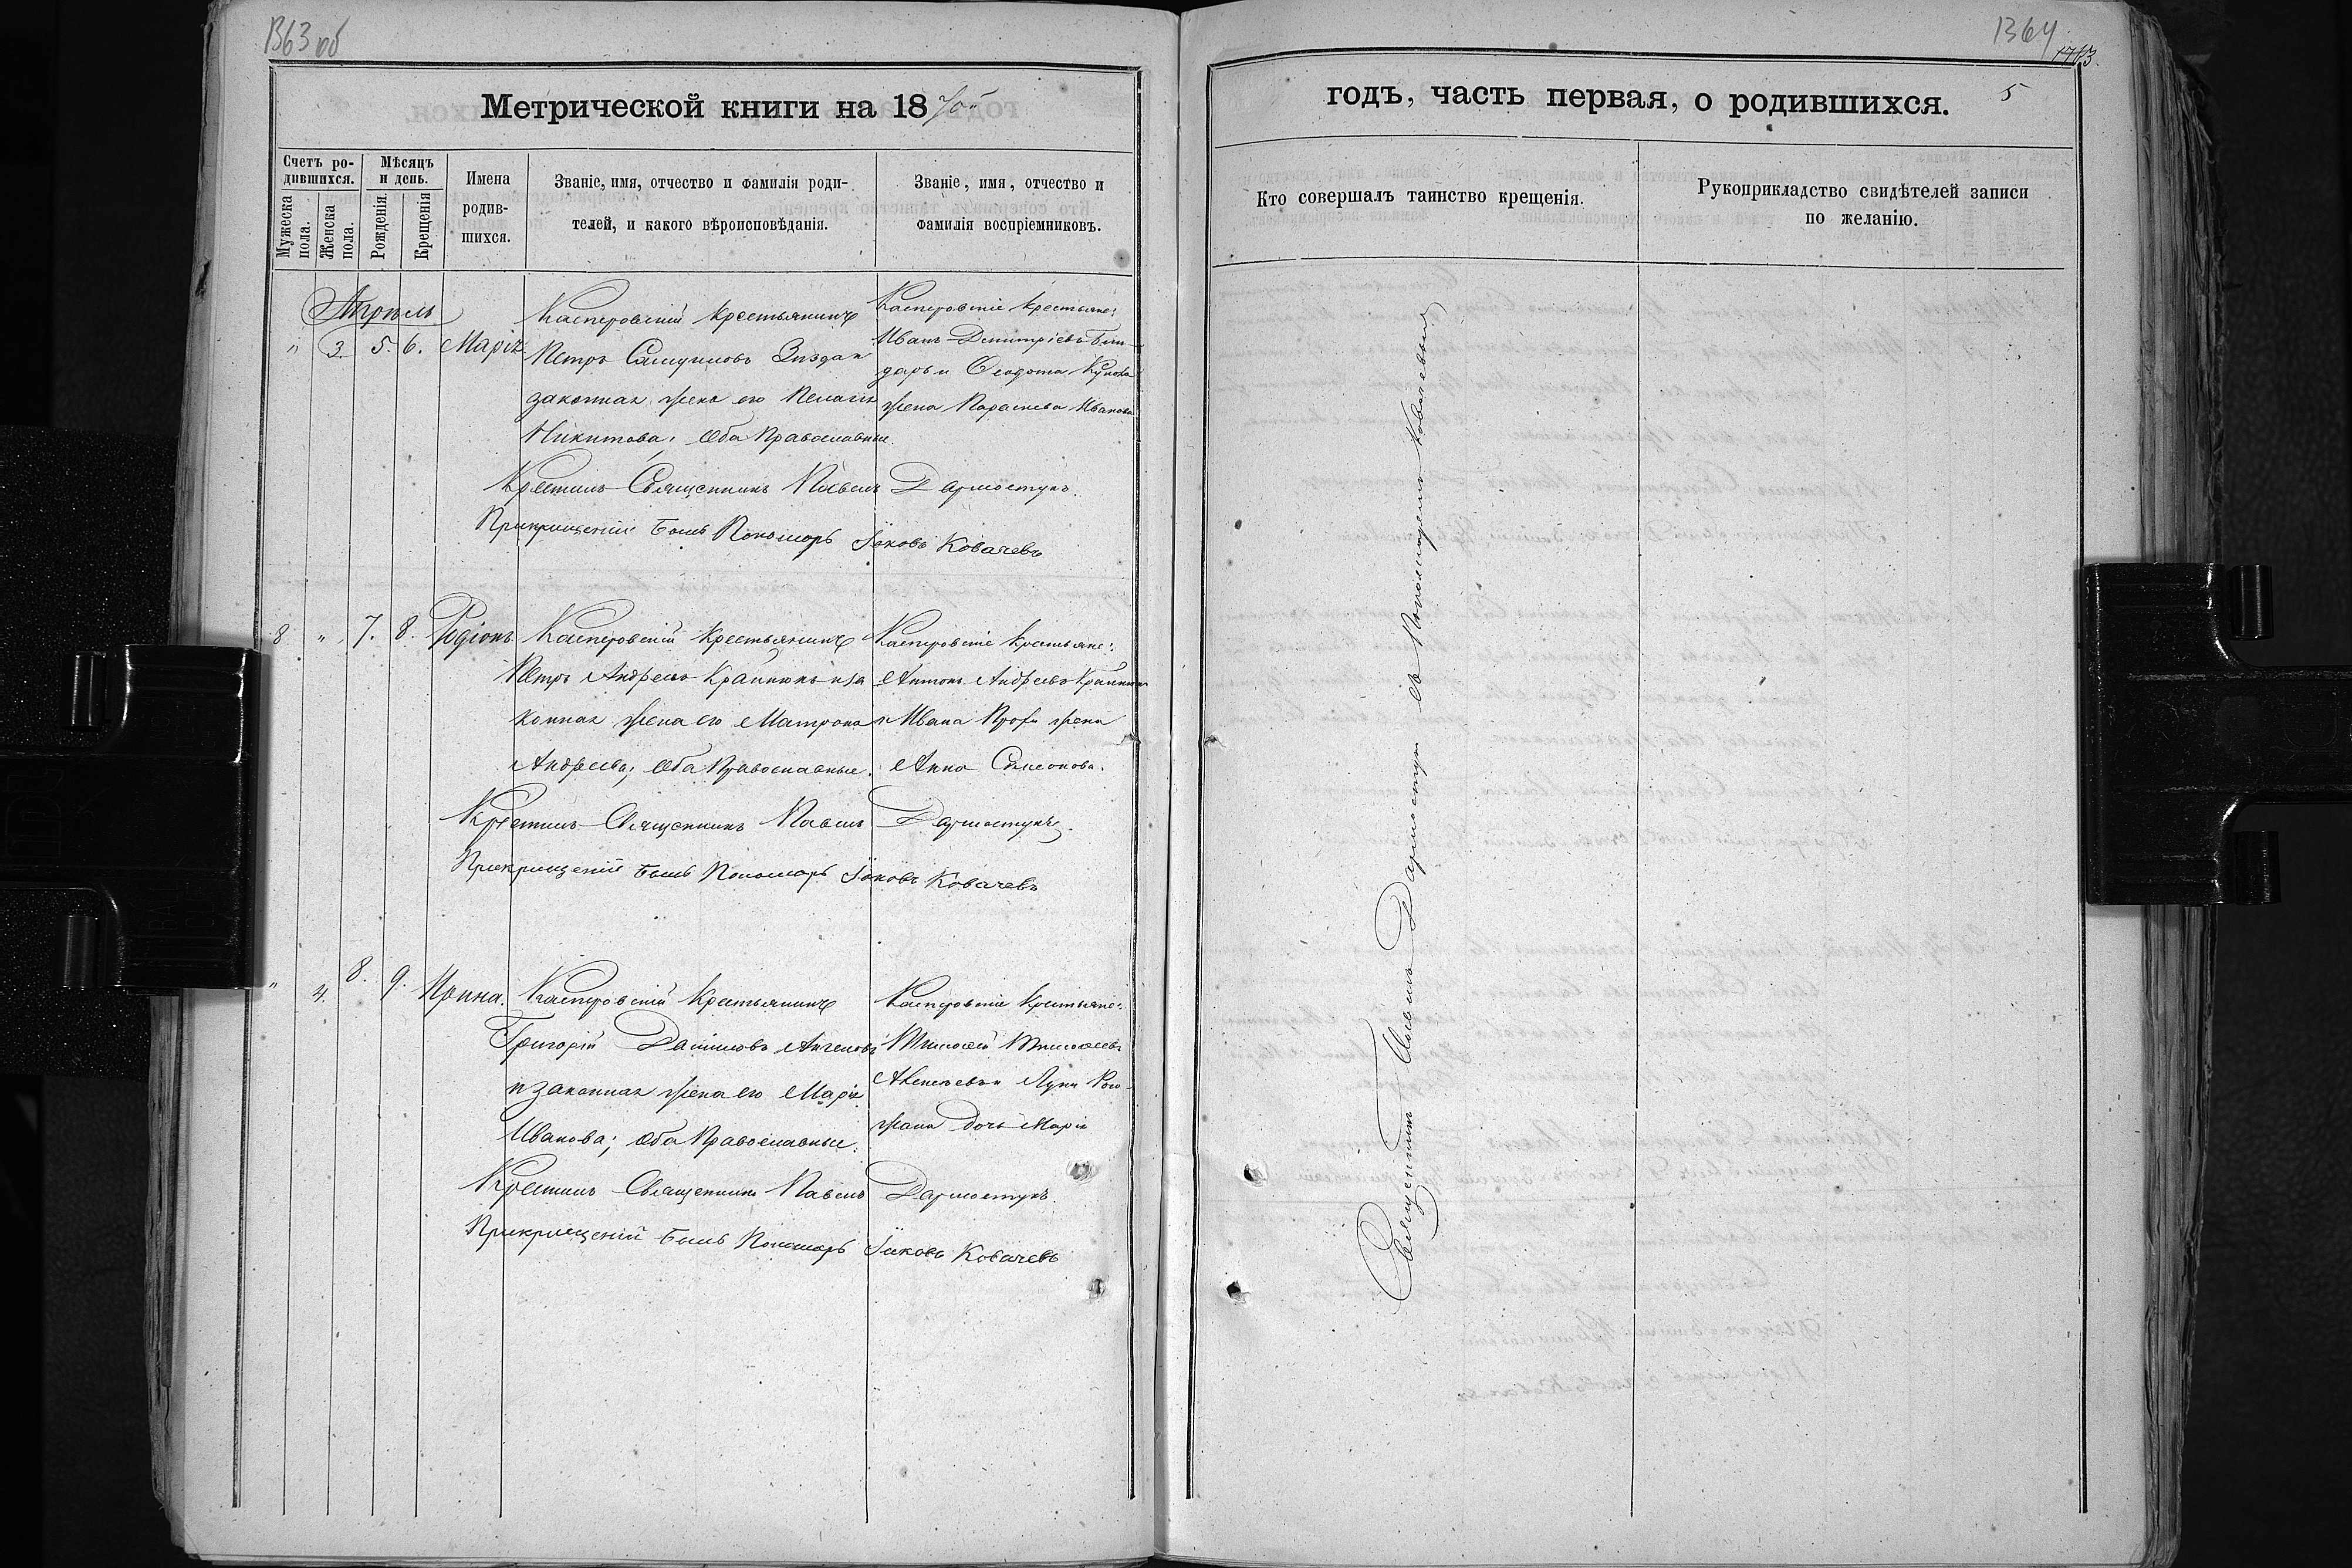 1363 об
1364
1713.
Метрической книги на 1870.
годъ, часть первая, о родившихся.
5
Счетъ ро-
дившихся.
Мужеска
пола.
Женска
пола.
Мѣсяцъ
и день.
Рожденія.
Крещенія
Имена
родив-
шихся.
Званіе, имя, отчество и фамилія роди-
телей, и какого вѣроисповѣданія.
Званіе, имя, отчество и
фамилія воспріемниковъ.
Кто совершалъ таинство крещенія.
Рукоприкладство свидѣтелей записи
по желанію.
Апрѣль
" 3. 5. 6. Марія
Касперовскій крестьянинъ
Петръ Самуиловъ
законная жена его Пелагія
Никитова; оба Православные.
Касперовскіе крестьяне:
Иванъ Димитріевъ
и Ѳеодота
жена Параскева Иванова
Крестилъ Священникъ Павелъ Дармостукъ.
Прикрищеніи былъ Пономарь Іаковъ Ковачевъ
8 " 7. 8. Родіонъ
Касперовскій крестьянинъ
Петръ Андреевъ Крайнюкъ и за
конная жена его Матрона
Андреева; оба Православные.
Касперовскіе крестьяне:
Антонъ Андреевъ Крайнюкъ
и Ивана жена
Анна Симеонова.
Крестилъ Священникъ Павелъ Дармостукъ.
Прикрищеніи былъ Пономарь Іаковъ Ковачевъ
" 4. 8. 9. Ирина.
Касперовскій крестьянинъ
Григорій Даниловъ Ангеловъ
и законная жена его Марія
Иванова; оба Православные.
Касперовскіе крестьяне:
Тимоѳей Тимоѳеевъ
Луки
дочь Марія
Крестилъ Священникъ Павелъ Дармостукъ.
Прикрищеніи былъ Пономарь Іаковъ Ковачевъ
Священникъ Павелъ Дармостукъ съ Пономаремъ Ковачевымъ